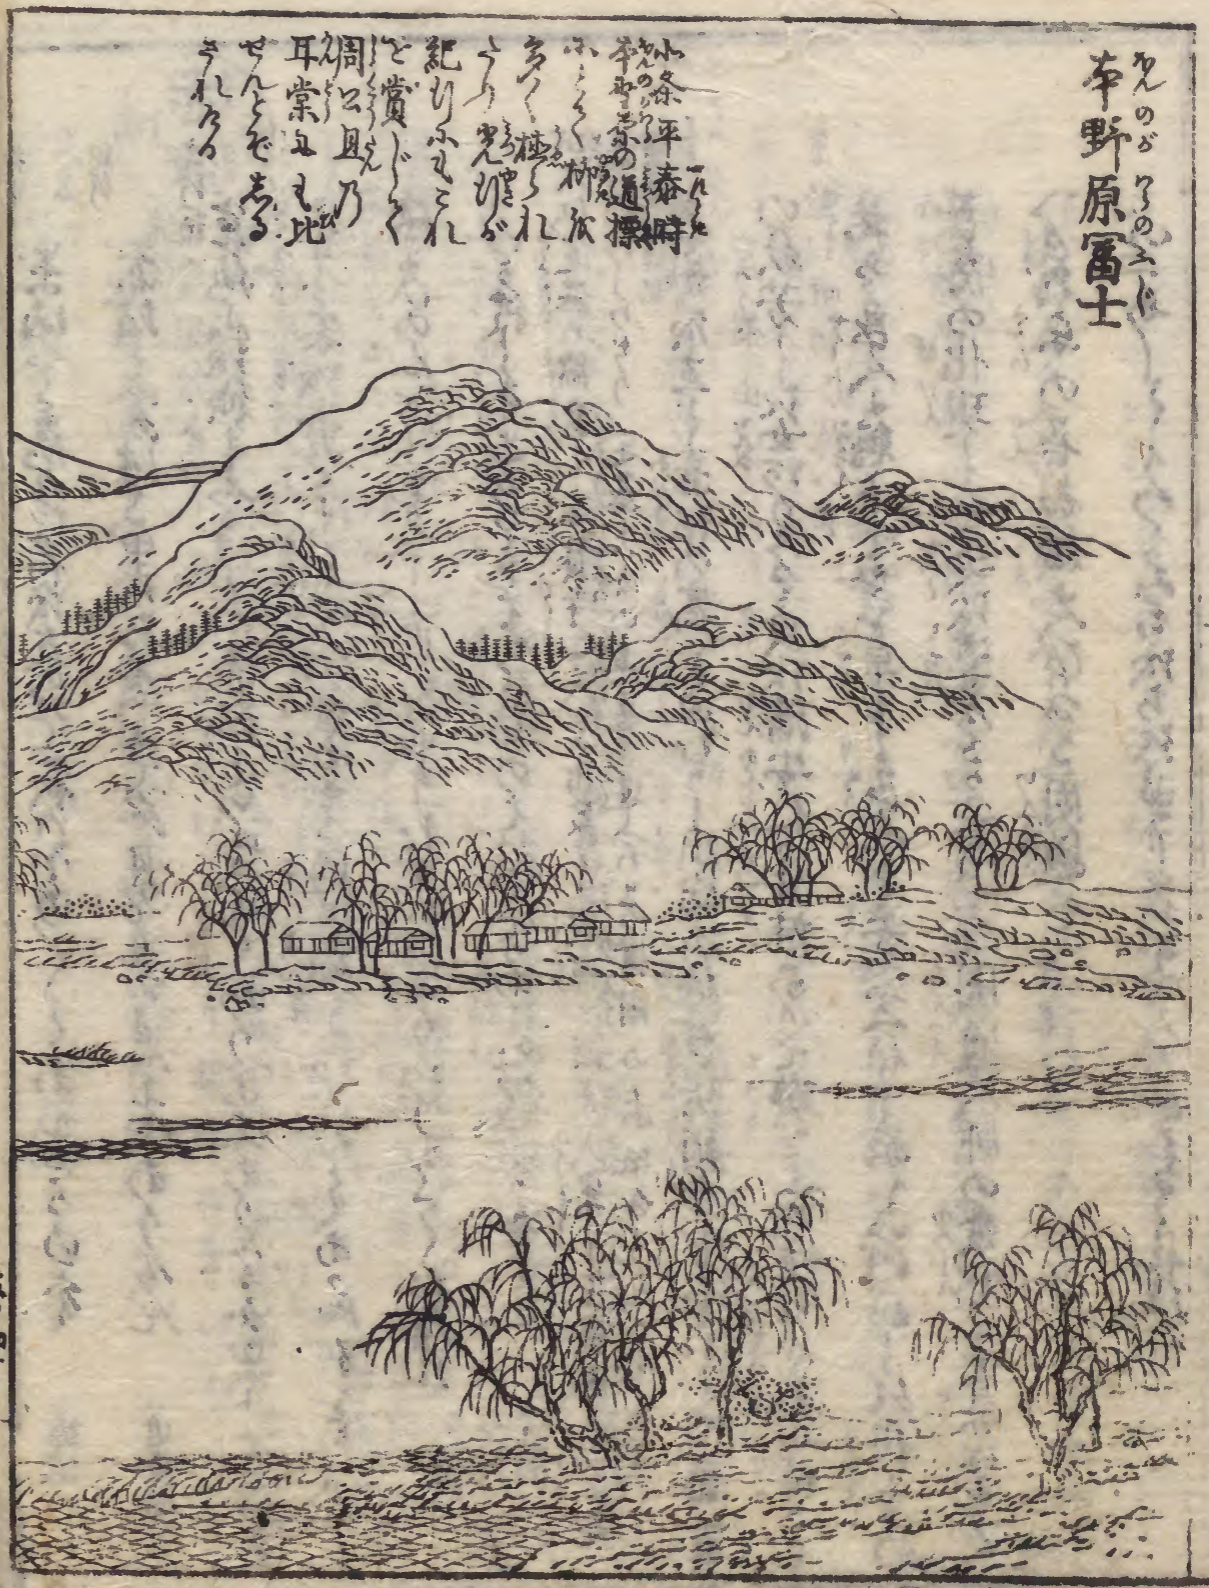 ほんのが はらのふじ
本野原冨士
北条平泰時
本野原の道標
にとて柳を
多く植られ
たり光行が
紀行にもこれ
を賞じて
周公旦乃
甘棠にも比
せんとぞ志る
されける